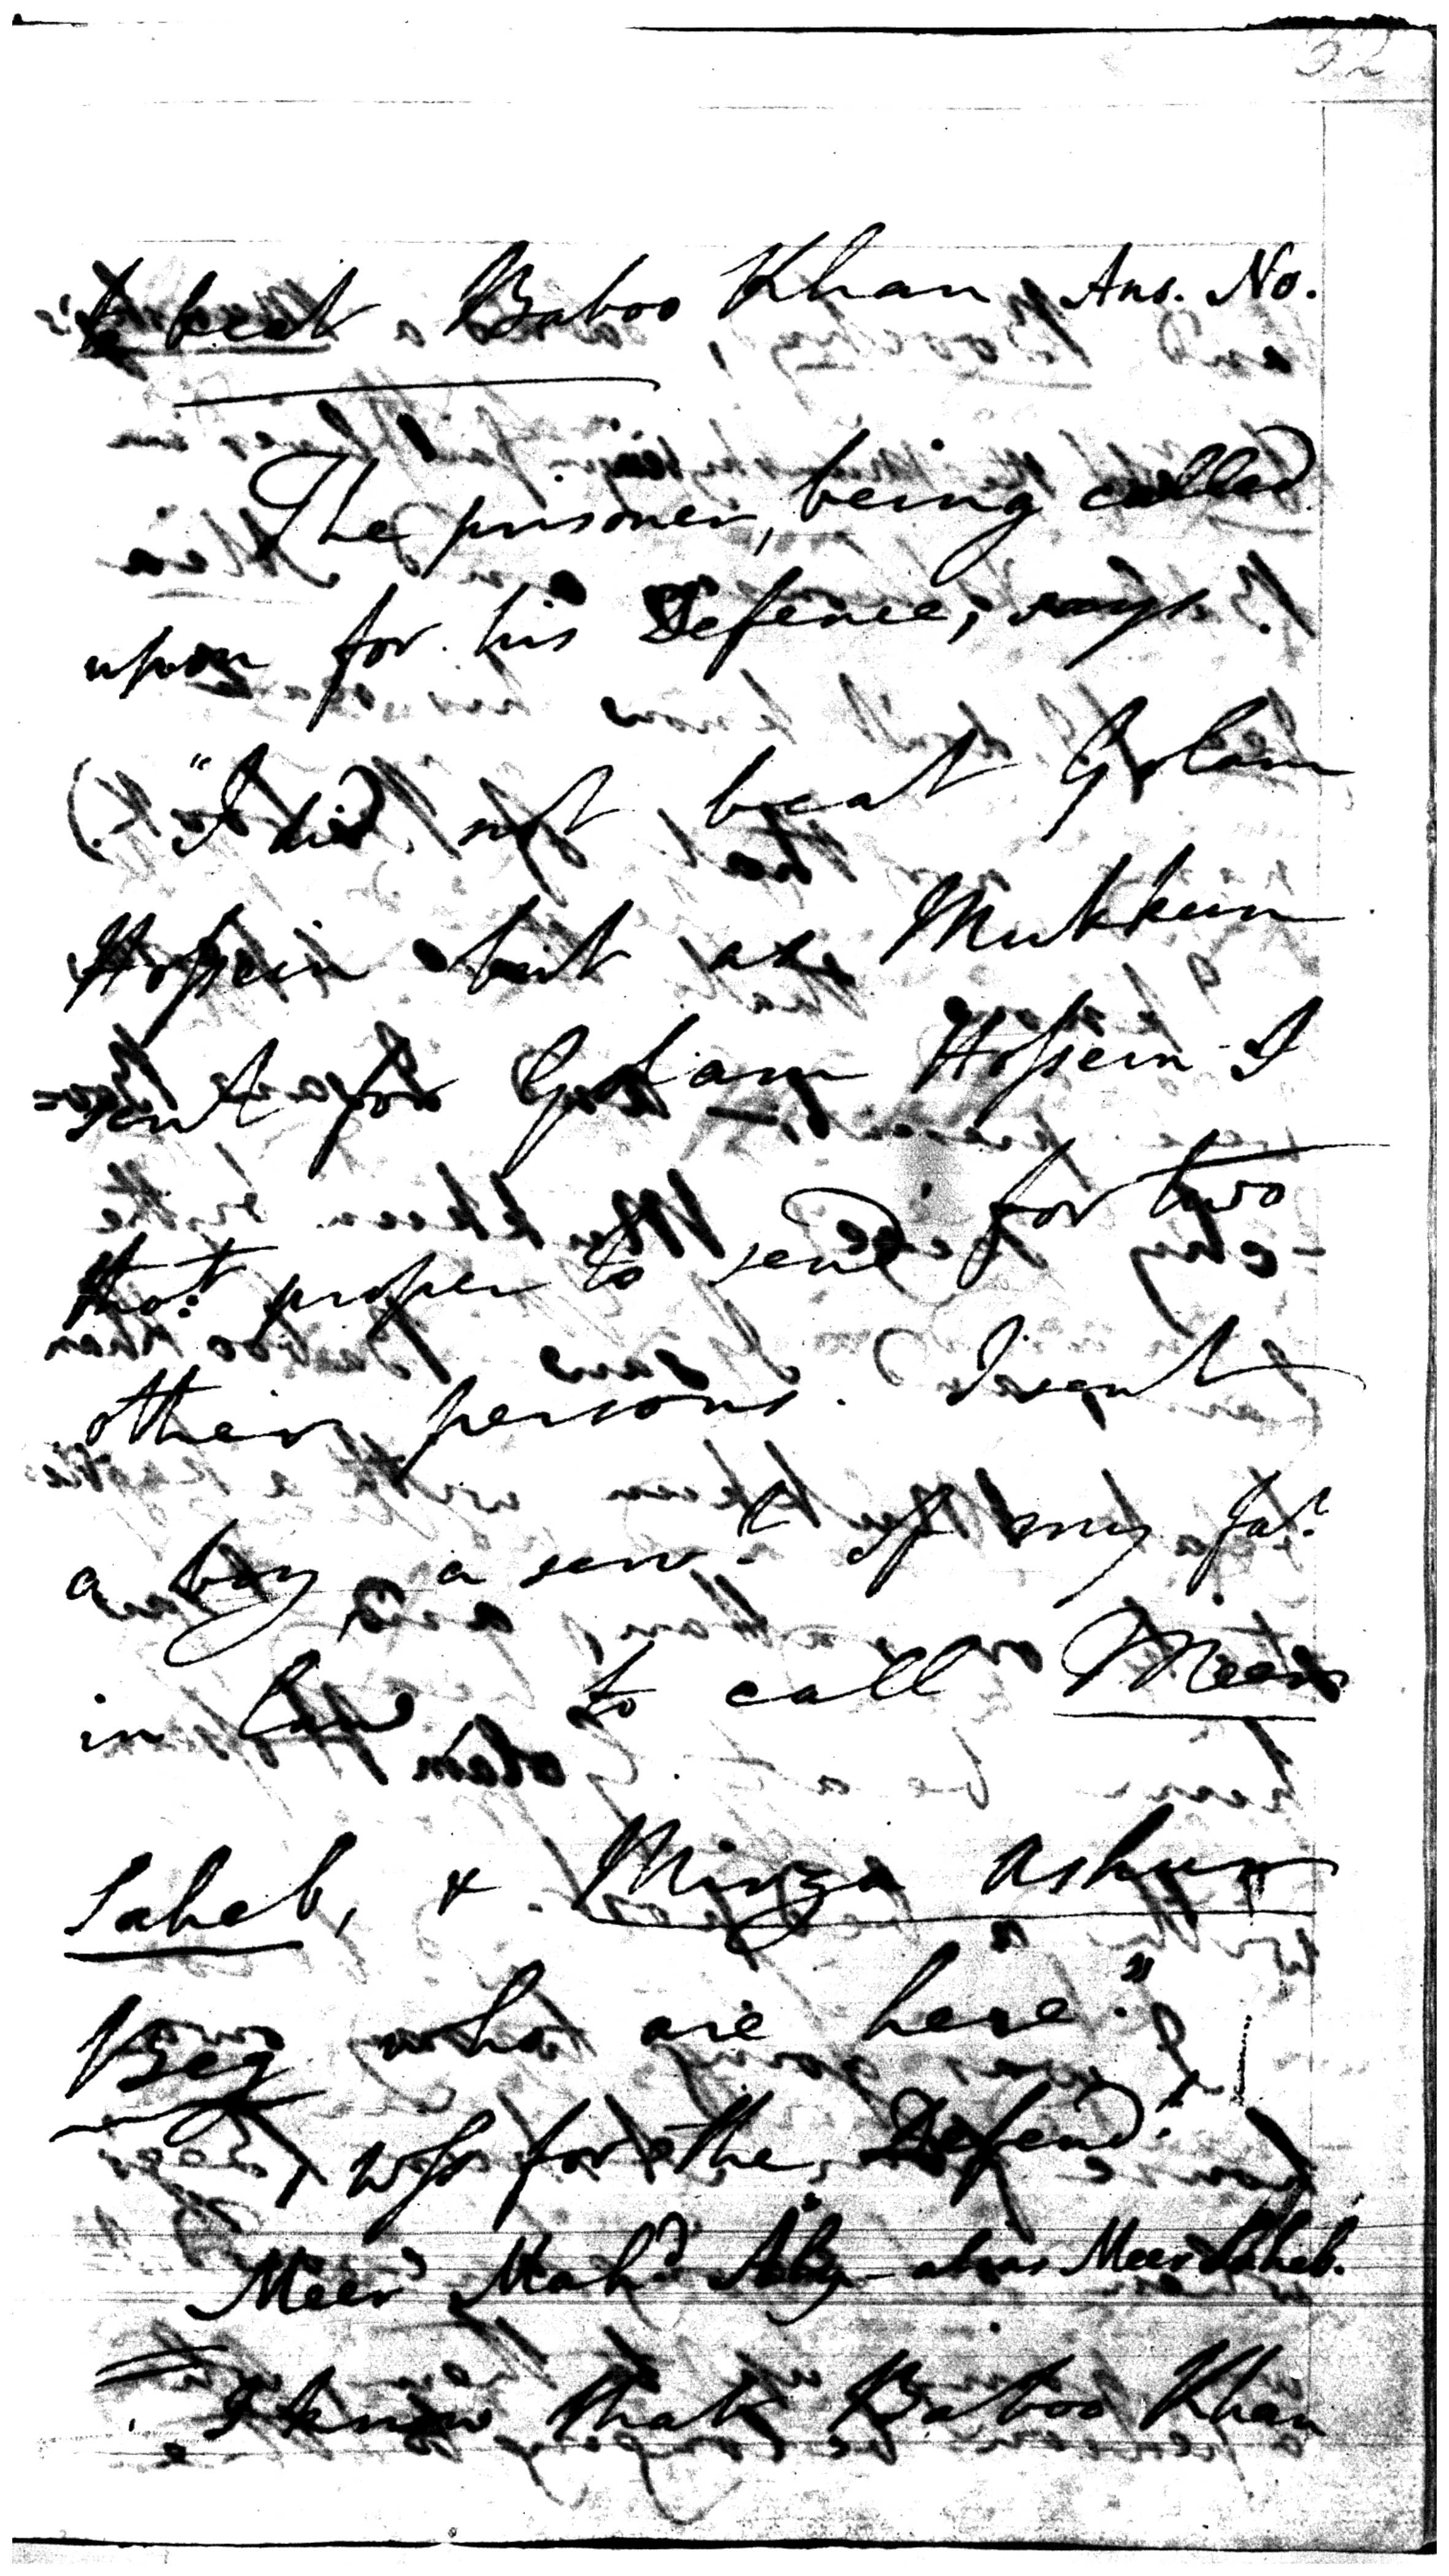 32
to beat Baboo Khan, Ans. No.
The prisoner, being called
upon for his Defence, says
"I did not beat Golam
Hossein but as Mukkun
sent for Golam Hossein I
tho:t proper to send for two
other persons. I sent
a boy, a serv.t of my fa.r
in law to call Meer
Saheb, & Mirza Ashun
Beg who are here."
for the Defend.t
Meer Mah.d alias Meer Saheb.
I know that Baboo Khan